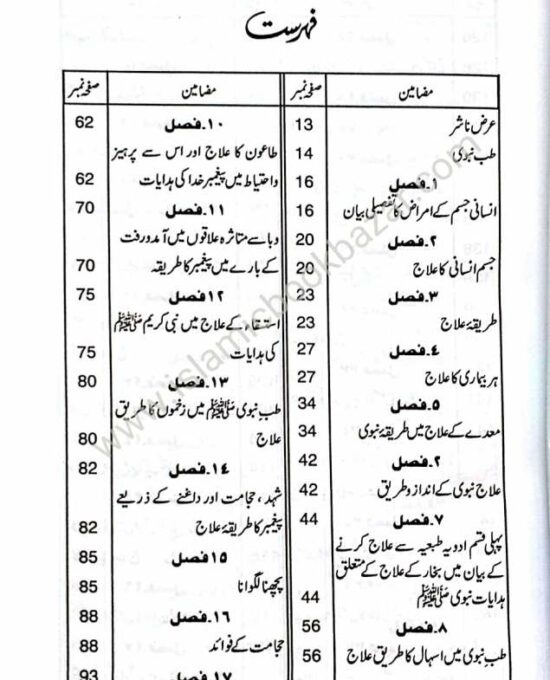 فہرست
مضامین صفحہ نمبر
عرض ناشر 13
طب نبوی 14
۱.فصل 16
انسانی جسم کے امراض کا تفصیلی بیان 16
۲.فصل 20
جسم انسانی کا علاج 20
۳.فصل 23
طریقۂ علاج 23
۴.فصل 27
ہر بیماری کا علاج 27
۵.فصل 34
معدے کے علاج میں طریقۂ نبوی 34
۲.فصل 42
علاج نبوی کے انداز و طریق 42
۷.فصل 44
پہلی قسم ادویہ طبعیہ سے علاج کرنے
کے بیان میں بخار کے علاج کے متعلق
ہدایات نبوی ﷺ 44
۸.فصل 56
طب نبوی میں اسہال کا طریق علاج 56
مضامین صفحہ نمبر
۱۰.فصل 62
طاعون کا علاج اور اس سے پرہیز
و احتیاط میں پیغمبر خدا کی ہدایات 62
۱۱.فصل 70
وبا سے متاثرہ علاقوں میں آمدورفت
کے بارے میں پیغمبر کا طریقہ 70
۱۲فصل 75
استسقاء کے علاج میں نبی کریم ﷺ
کی ہدایات 75
۱۳.فصل 80
طب نبوی ﷺ میں زخموں کا طریق
علاج 80
۱۴.فصل 82
شہد، حجامت اور داغنے کے ذریعے
پیغمبر کا طریقۂ علاج 82
۱۵فصل 85
پچھنا لگوانا 85
۱۶.فصل 88
حجامت کے فوائد 88
۱۷.فصل 93
www.islamicbookbazar.com